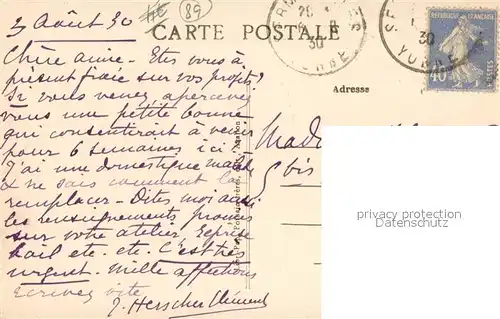 3 Août 30
89
CARTE POSTALE
RÉPUBLIQUE FRANÇAISE
POSTES
40
30
YONNE
30
YONNE
Adresse
Chère amie - Etes vous à
présent fixée sur vos projets ?
Si vous venez, apercevez
vous une petite bonne
qui consentirait à venir
pour 6 semaines ici ?
J'ai une domestique malade
& ne sais comment la
remplacer - Dites moi aussi
les renseignements promis
sur votre atelier
etc. etc. C'est très
urgent. Mille affections
Ecrivez vite
J. Herscher Clément
Mada
5 bis
privacy protection
Datenschutz